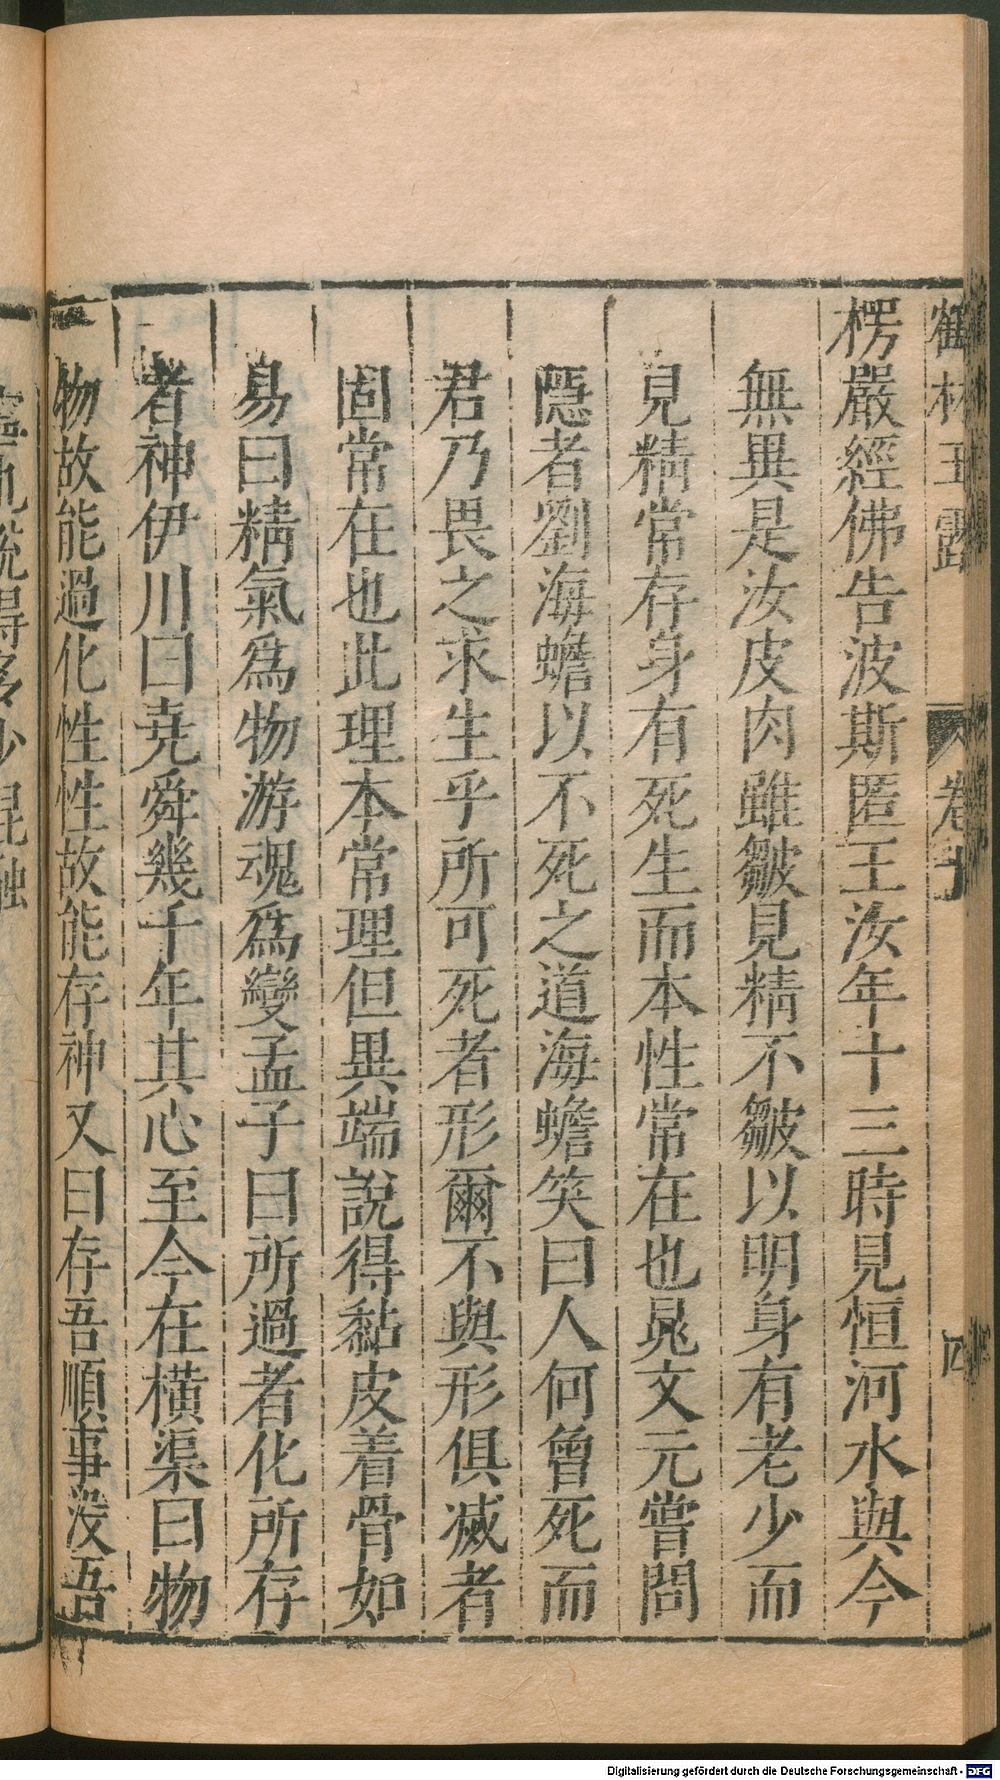 鶴林玉露
卷十
四
楞嚴經佛告波斯匿王汝年十三時見恒河水與今
無異是汝皮肉雖皺見精不皺以明身有老少而
見精常存身有死生而本性常在也晁文元嘗問
隱者劉海蟾以不死之道海蟾笑曰人何曾死而
君乃畏之求生乎所可死者形爾不與形俱滅者
固常在也此理本常理但異端說得黏皮着骨如
易曰精氣為物游魂為變孟子曰所過者化所存
者神伊川曰堯舜幾千年其心至今在橫渠曰物
物故能過化性性故能存神又曰存吾順事没吾
寧也說得多少混融
Digitalisierung gefördert durch die Deutsche Forschungsgemeinschaft - DFG